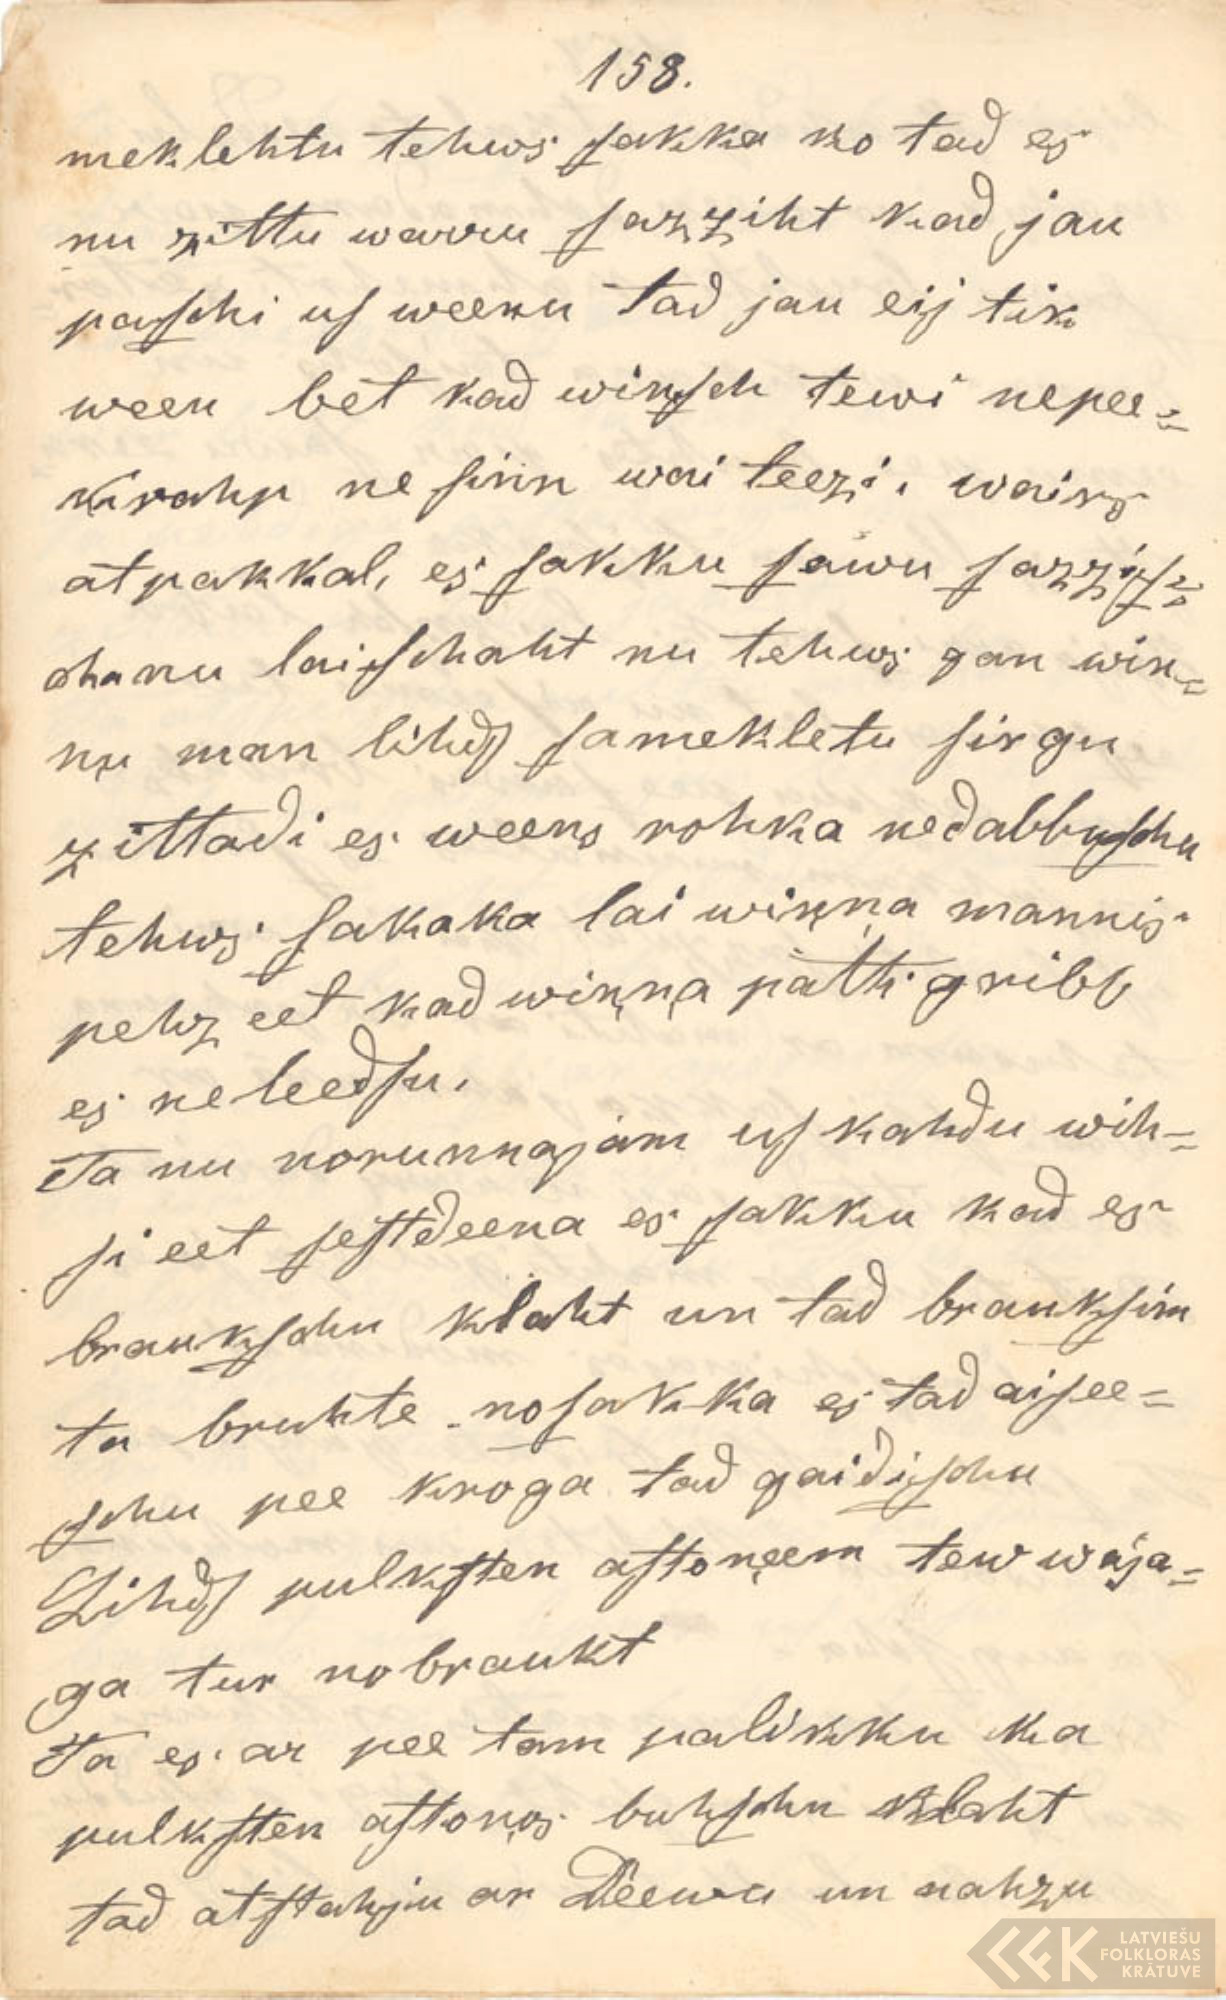 158.
meklehtu tehws ſakka ko tad es
nu zittu warru ſazziht kad jau
paſchi uſ weenu tad jau eij tik
ween bet kad winſch tewi nepee=
krahp ne ſinn wai teezi, wairs
atpakkal, es ſakku ſawu ſazziſ=
chanu laiſchaht nu tehws gan win=
ņu man lihdſ ſamekletu ſirgu
zittadi es weens rohka nedabbuſchu
tehws ſakaka lai wiņņa mannis
pehz eet kad wiņņa patti gribb
es neleedſu,
Ta nu norunnajam uſ kahdu wih=
ſi eet ſeſtdeena es ſakku kad es
braukſchu klaht un tad braukſim
ta bruhte noſakka es tad aiſee=
ſchu pee kroga tad gaidiſchu
Lihdſ pulkſten aſtoņeem tew waja=
ga tur nobraukt
Ta es ar pee tam palikku ka
pulkſten aſtoņos buhſchu klaht
tad atſtahju ar Deewu un nahzu
LATVIEŠU
FOLKLORAS
KRĀTUVE